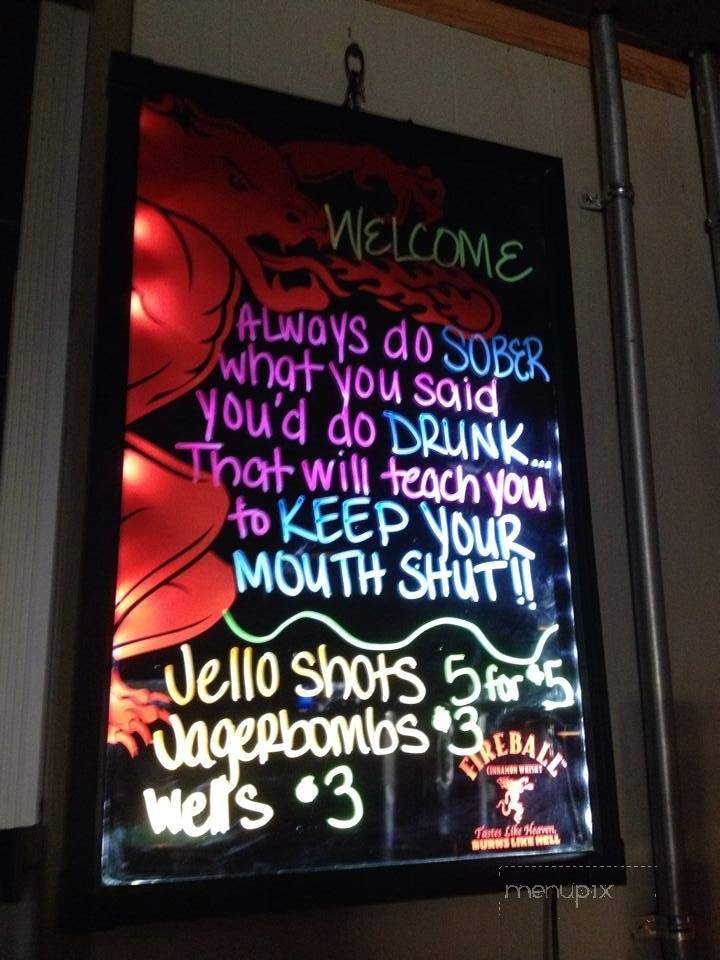 WELCOME
ALWAYS dO SOBER
what you said
you'd do DRUNK...
That will teach you
to KEEP YOUR
MOUTH SHUT!!
Jello shots 5 for $5
Jagerbombs $3
Wells $3
FIREBALL
CINNAMON WHISKY
Tastes Like Heaven,
BURNS LIKE HELL
menupix